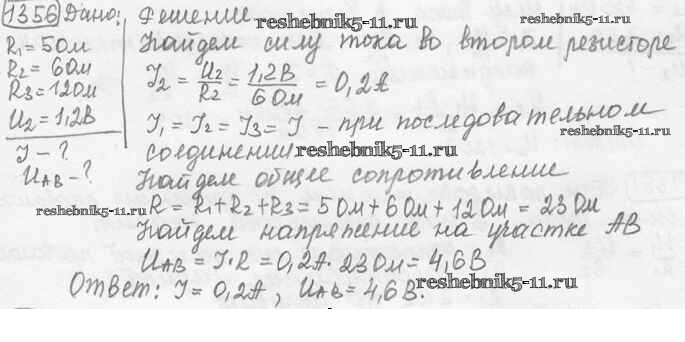 1356 Дано: Решение reshebnik5-11.ru
R1 = 5 Ом Найдем силу тока во втором резисторе
R2 = 6 Ом
R3 = 12 Ом I2 = U2/R2 = 1,2 В/6 Ом = 0,2 А
U2 = 1,2 В I1 = I2 = I3 = I – при последовательном
reshebnik5-11.ru
I – ? соединении reshebnik5-11.ru
UAB – ? Найдем общее сопротивление
reshebnik5-11.ru R = R1 + R2 + R3 = 5 Ом + 6 Ом + 12 Ом = 23 Ом
Найдем напряжение на участке AB
UAB = I·R = 0,2 А · 23 Ом = 4,6 В
Ответ: I = 0,2 А, UAB = 4,6 В. reshebnik5-11.ru